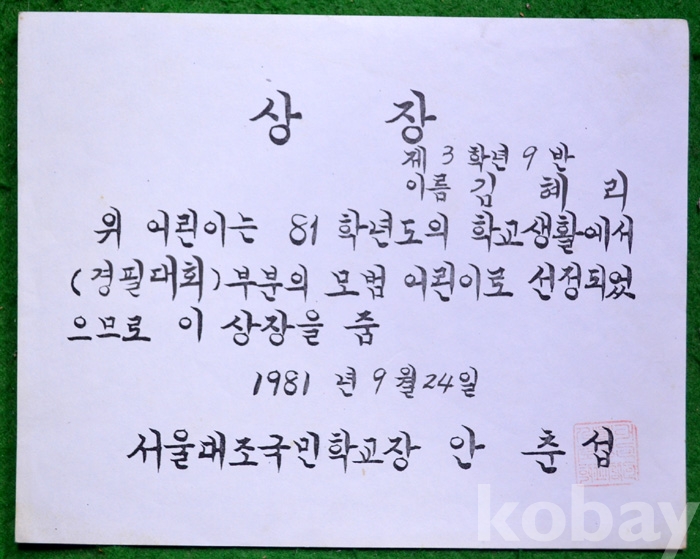 상 장
제 3 학년 9 반
이름 김 혜 리
위 어린이는 81 학년도의 학교생활에서
(경필대회)부분의 모범 어린이로 선정되었
으므로 이 상장을 줌
1981 년 9 월 24 일
서울대조국민학교장 안 춘 섭
kobay